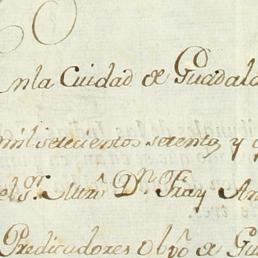 En la Cuidad de Guadala
mil setecientos setenta, y
el Sor. Mtro. Dn. Fray An
Predicadores Obpo. de Gu